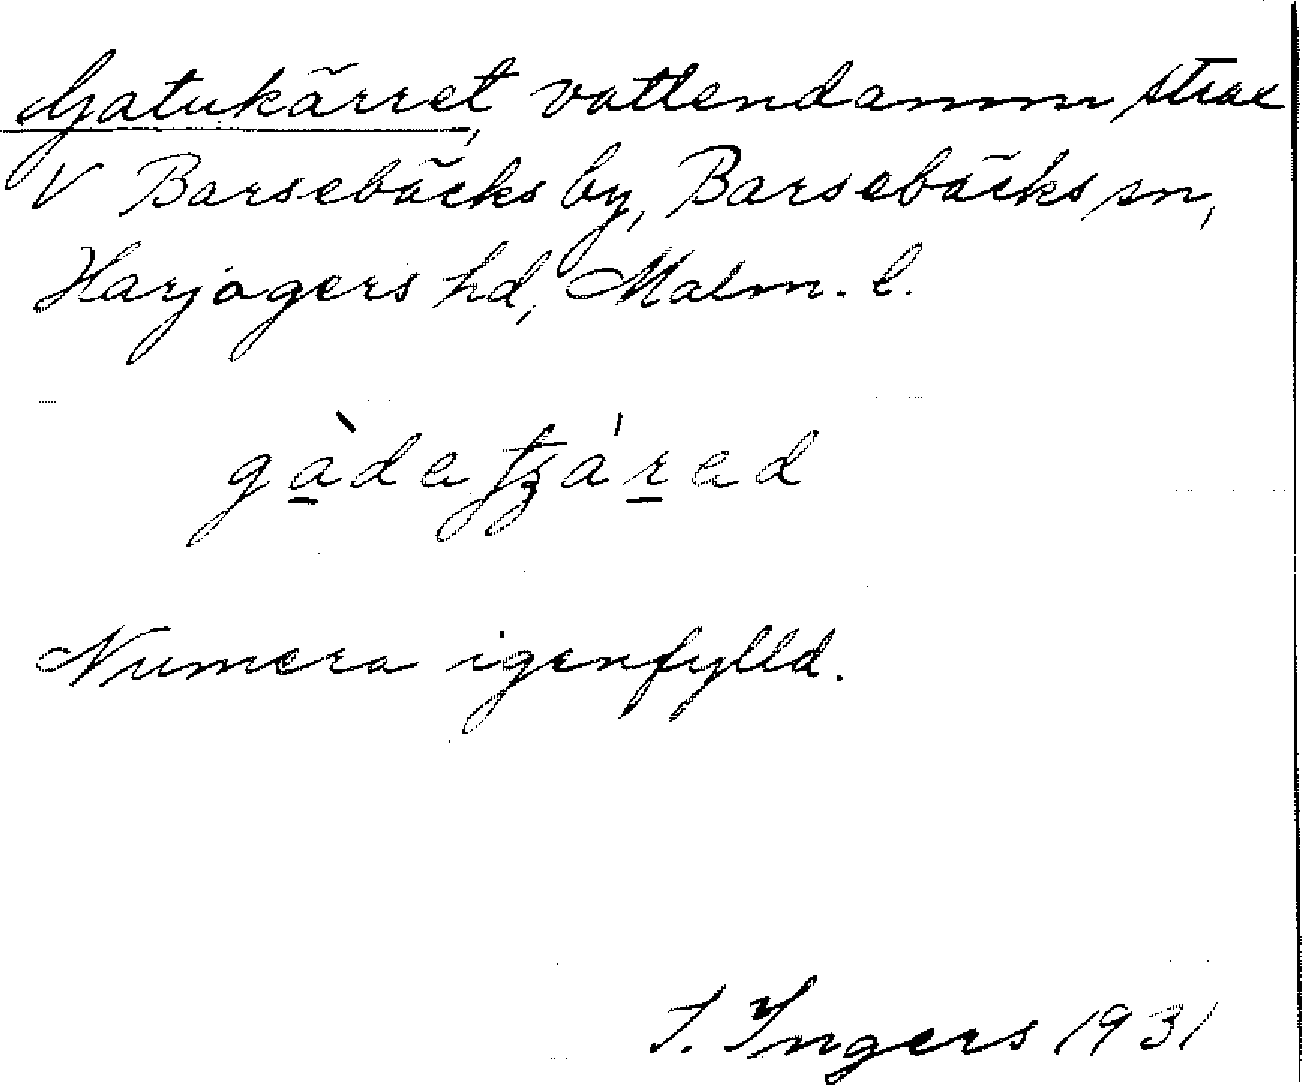 Gatukärret, vattendamm strax
V Barsebäcks by, Barsebäcks sn,
Harjagers hd, Malm. l.
gàdatʒárad
Numera igenfylld.
I. Ingers 1931